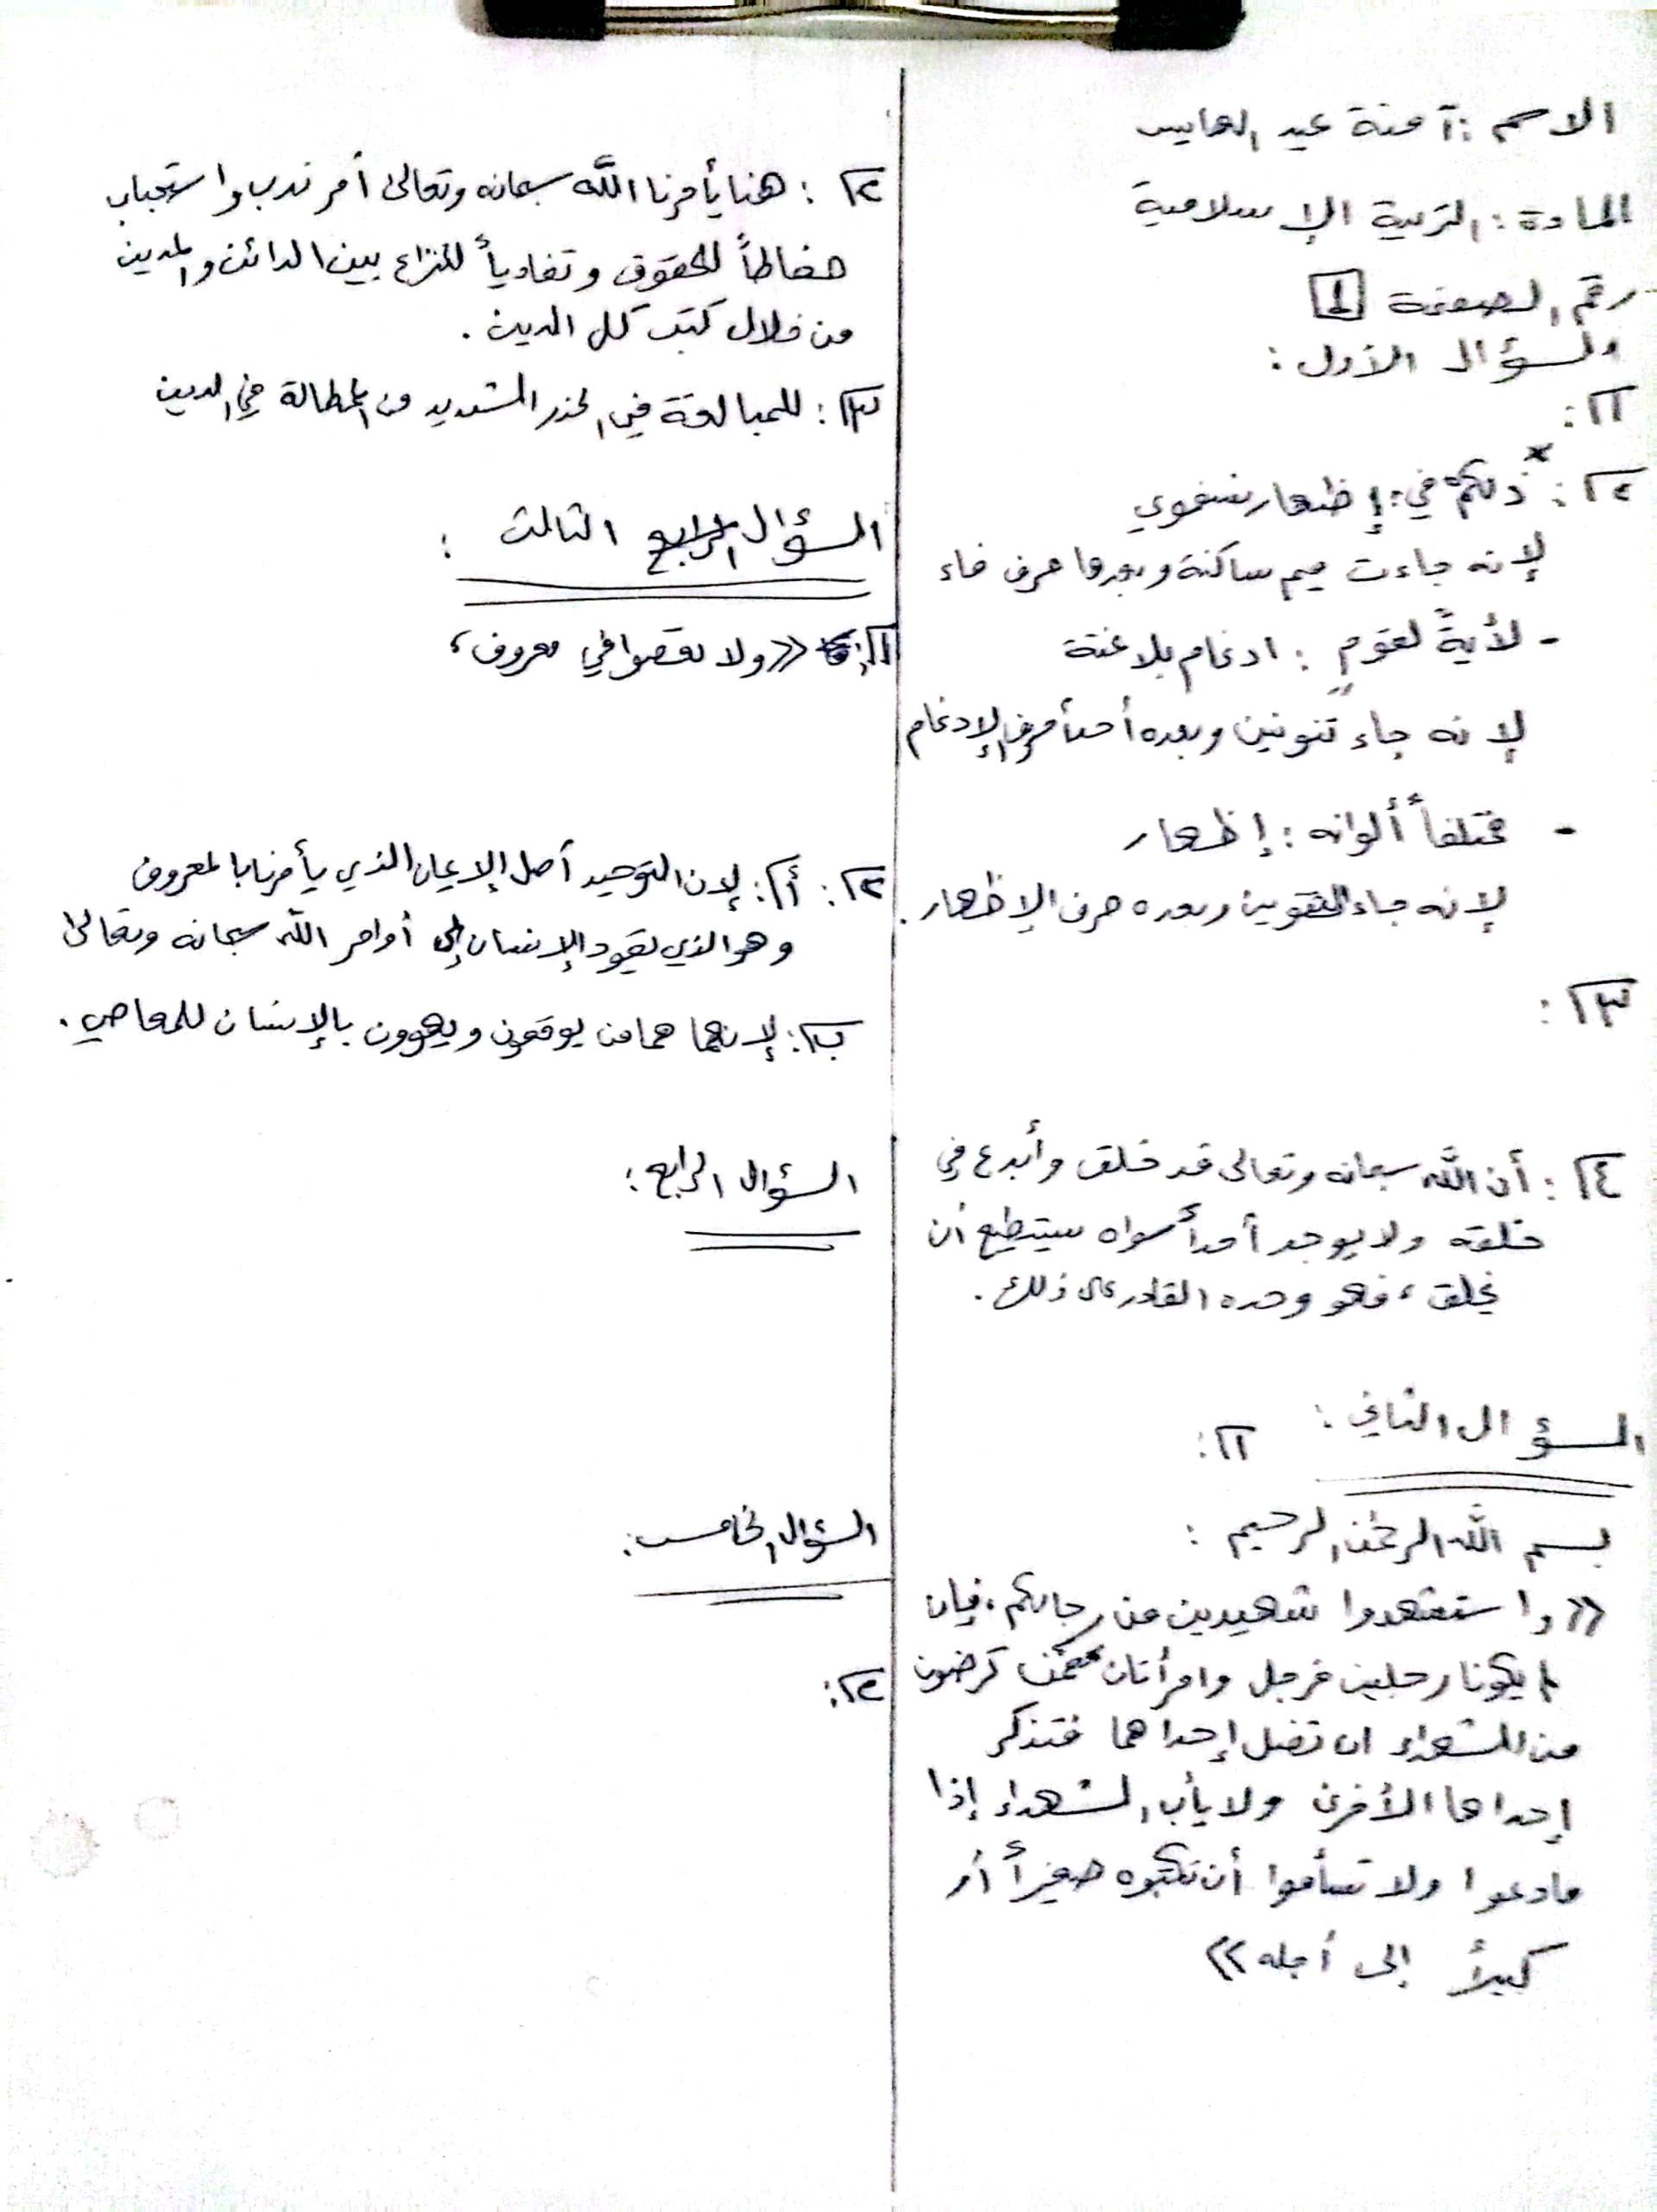 الاسم : آمنة عيد الهايس
المادة : التربية الإسلامية
رقم الصفحة 1
السؤال الأول :
ج١ :
ج٢ : * ذلكم في : إظهار شفوي
لإنه جاءت ميم ساكنة وبعدها حرف فاء
- لأيةً لقومٍ : ادغام بلا غنة
لإنه جاء تنوين وبعده أحد أحرف الإدغام
- مختلفاً ألوانه : إظهار
لإنه جاء التنوين وبعده حرف الإظهار .
ج٣ :
ج٤ : أن الله سبحانه وتعالى قد خلق وأبدع في
خلقه ولا يوجد أحداً سواه يستطيع أن
يخلق ، فهو وحده القادر على ذلك .
السؤال الثاني : ج١ :
بسم الله الرحمن الرحيم :
«واستشهدوا شهيدين من رجالكم ، فإن
لم يكونا رجلين فرجل وامرأتان ممن ترضون
من الشهداء ان تضل إحداهما فتذكر
إحداهما الأخرى ولا يأب الشهداء إذا
مادعوا ولا تسأموا أن تكتبوه صغيراً أو
كبيراً إلى أجله»
ج٢ : هنا يأمرنا الله سبحانه وتعالى أمر ندب واستحباب
حفاظاً للحقوق وتفادياً للنزاع بين الدائن والمدين
من خلال كتب كل الدين .
ج٣ : للمبالغة في الحذر الشديد من المطالة في الدين
السؤال الرابع الثالث :
ج١ : «ولا تعصوا في معروف ،
ج٢ : أ : لإن التوحيد أصل الإيمان الذي يأمرنا بالمعروف
وهو الذي يقود الإنسان إلى أوامر الله سبحانه وتعالى
ب : لإنهما هما من يوقعون ويهوون بالإنسان للمعاصي .
السؤال الرابع :
السؤال الخامس :
ج٢ :